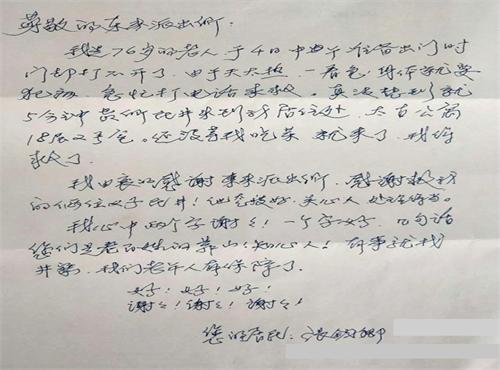 尊敬的东来派出所:
我是76岁的老人于4日中午准备出门时
门却打不开了。由于天太热一着急身体就要
犯病。急忙打电话求救。真没想到就
5分钟贵所民井来到我居住处太古公寓
18层2号仓。还没等我吃药就来了。我得
救了。
我由衷的感谢东来派出所。感谢救我
的两位女子民井!她态度好。关心人
我心中两个字谢谢!一个字好。几句话
您们是老百姓的靠山!知心人!有事就找
井察。我们老年人有保障了。
好!好!好!
谢谢!谢谢!谢谢!
您的居民: